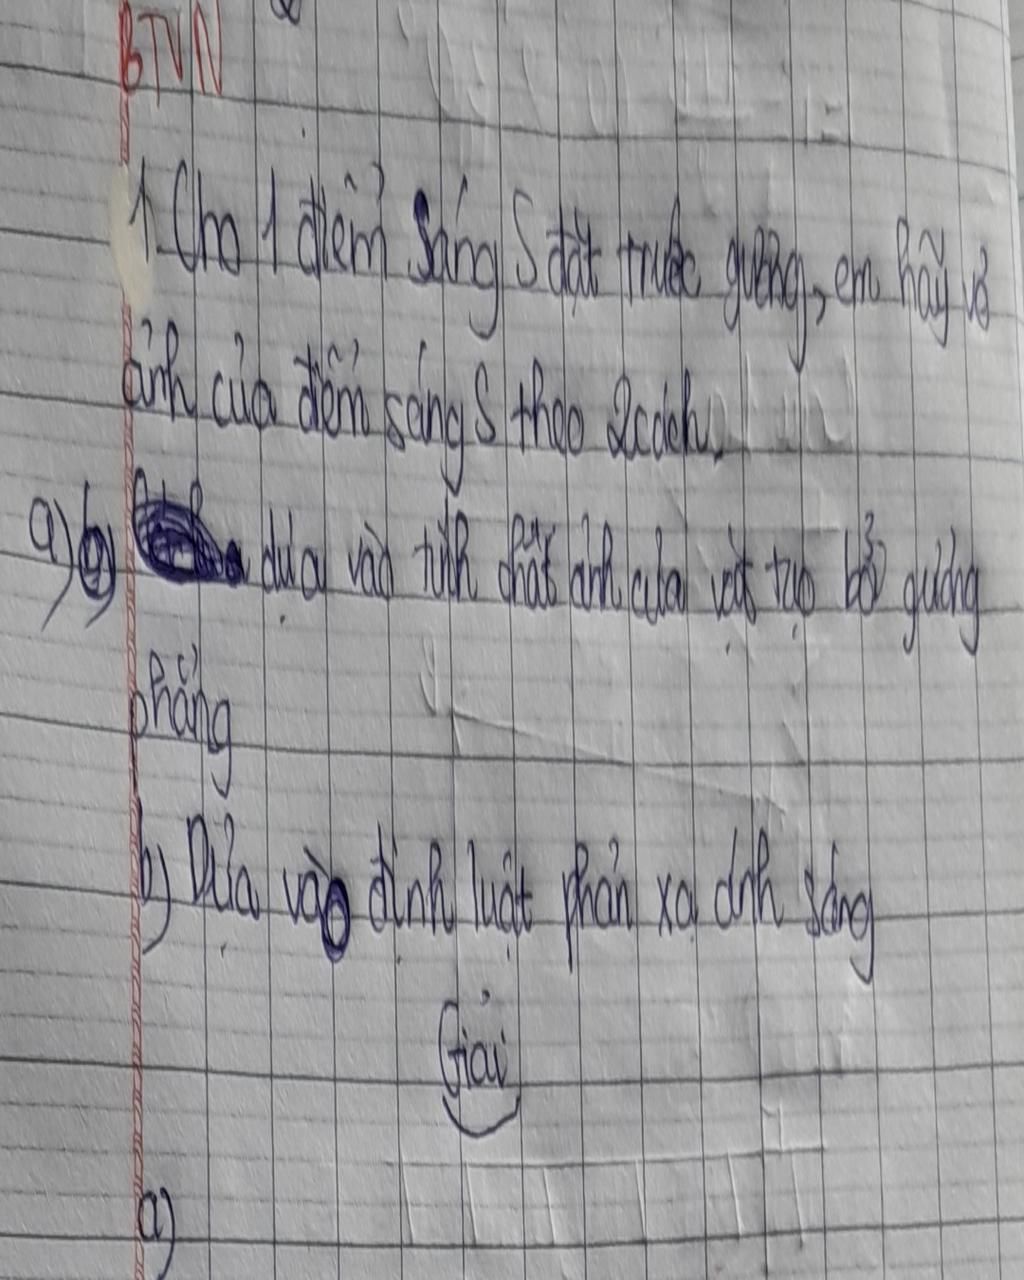 BTVN
1. Cho 1 điểm sáng S đặt trước gương, em hãy vẽ
ảnh của điểm sáng S theo 2 cách.
a) dựa vào tính chất ảnh của vật tạo bởi gương
phẳng
b) Dựa vào định luật phản xạ ánh sáng
Giải
a)